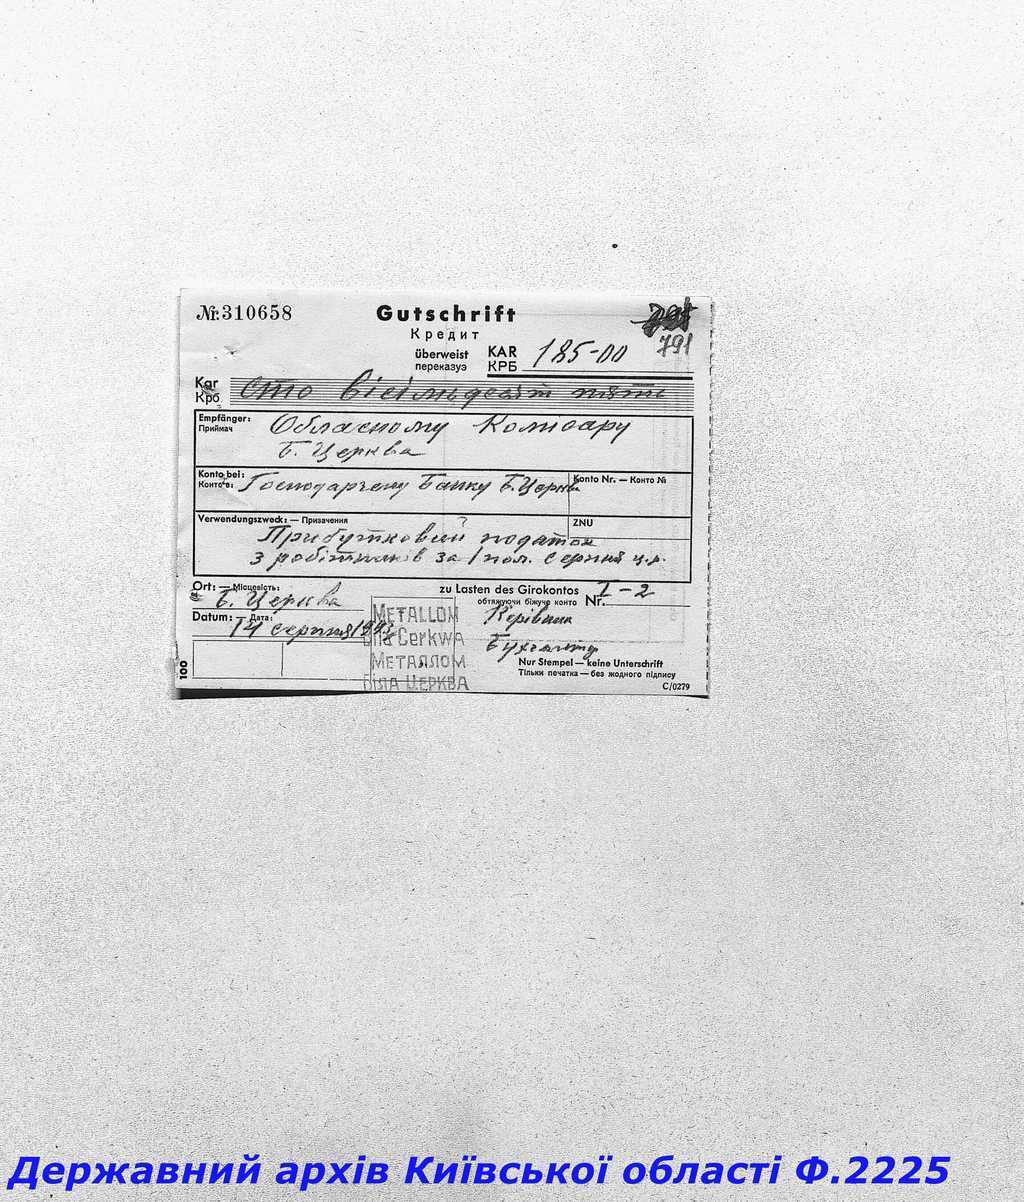 № 310658
Gutschrift
Кредит
791
überweist KAR 185-00
переказує КРБ
Kar Сто вісімьдесят пять
Крб
Empfänger: Обласному Комісару
Приймач
Б. Церква
Konto bei: Господарчему Банку Б. Церква Konto Nr. — Конто №
Конто в:
Verwendungszweck: — Призачення ZNU
Прибутковий податок
з робітників за 1 пол. серпня ц.р.
Ort: — Місцевість: zu Lasten des Girokontos I-2
Б. Церква обтяжуючи біжуче конто Nr.
Datum: — Дата: 14 серпня 1943
Керівник
Бухгалтер
METALLOM
Bila Cerkwa
МЕТАЛЛОМ
БІЛА ЦЕРКВА
100
Nur Stempel — keine Unterschrift
Тільки печатка — без жодного підпису
C/0279
Державний архів Київської області Ф.2225